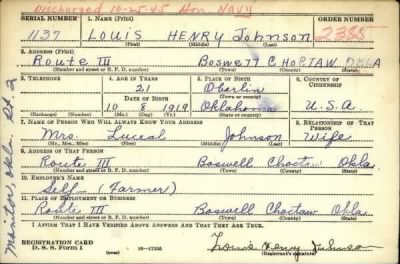 Discharged 10-25-45 Hon. NAVY
SERIAL NUMBER 1. NAME (Print) ORDER NUMBER
1137 LOUIS HENRY Johnson 2385
(First) (Middle) (Last)
2. ADDRESS (Print)
Route III Boswell CHOCTAW OKLA
(Number and street or R. F. D. number) (Town) (County) (State)
3. TELEPHONE 4. AGE IN YEARS 5. PLACE OF BIRTH 6. COUNTRY OF CITIZENSHIP
21 Oberlin
DATE OF BIRTH (Town or county)
10 8 1919 Oklahoma U.S.A
(Exchange) (Number) (Mo.) (Day) (Yr.) (State or country)
7. NAME OF PERSON WHO WILL ALWAYS KNOW YOUR ADDRESS 8. RELATIONSHIP OF THAT PERSON
Mrs. Luceal Johnson Wife
(Mr., Mrs., Miss) (First) (Middle) (Last)
9. ADDRESS OF THAT PERSON
Route III Boswell Choctaw Okla
(Number and street or R. F. D. number) (Town) (County) (State)
10. EMPLOYER'S NAME
Self - (Farmer)
11. PLACE OF EMPLOYMENT OR BUSINESS
Route III Boswell Choctaw Okla
(Number and street or R. F. D. number) (Town) (County) (State)
I AFFIRM THAT I HAVE VERIFIED ABOVE ANSWERS AND THAT THEY ARE TRUE.
REGISTRATION CARD
D. S. S. FORM 1 16-17105 Louis Henry Johnson
(Registrant's signature)
Okla. Rt. 2